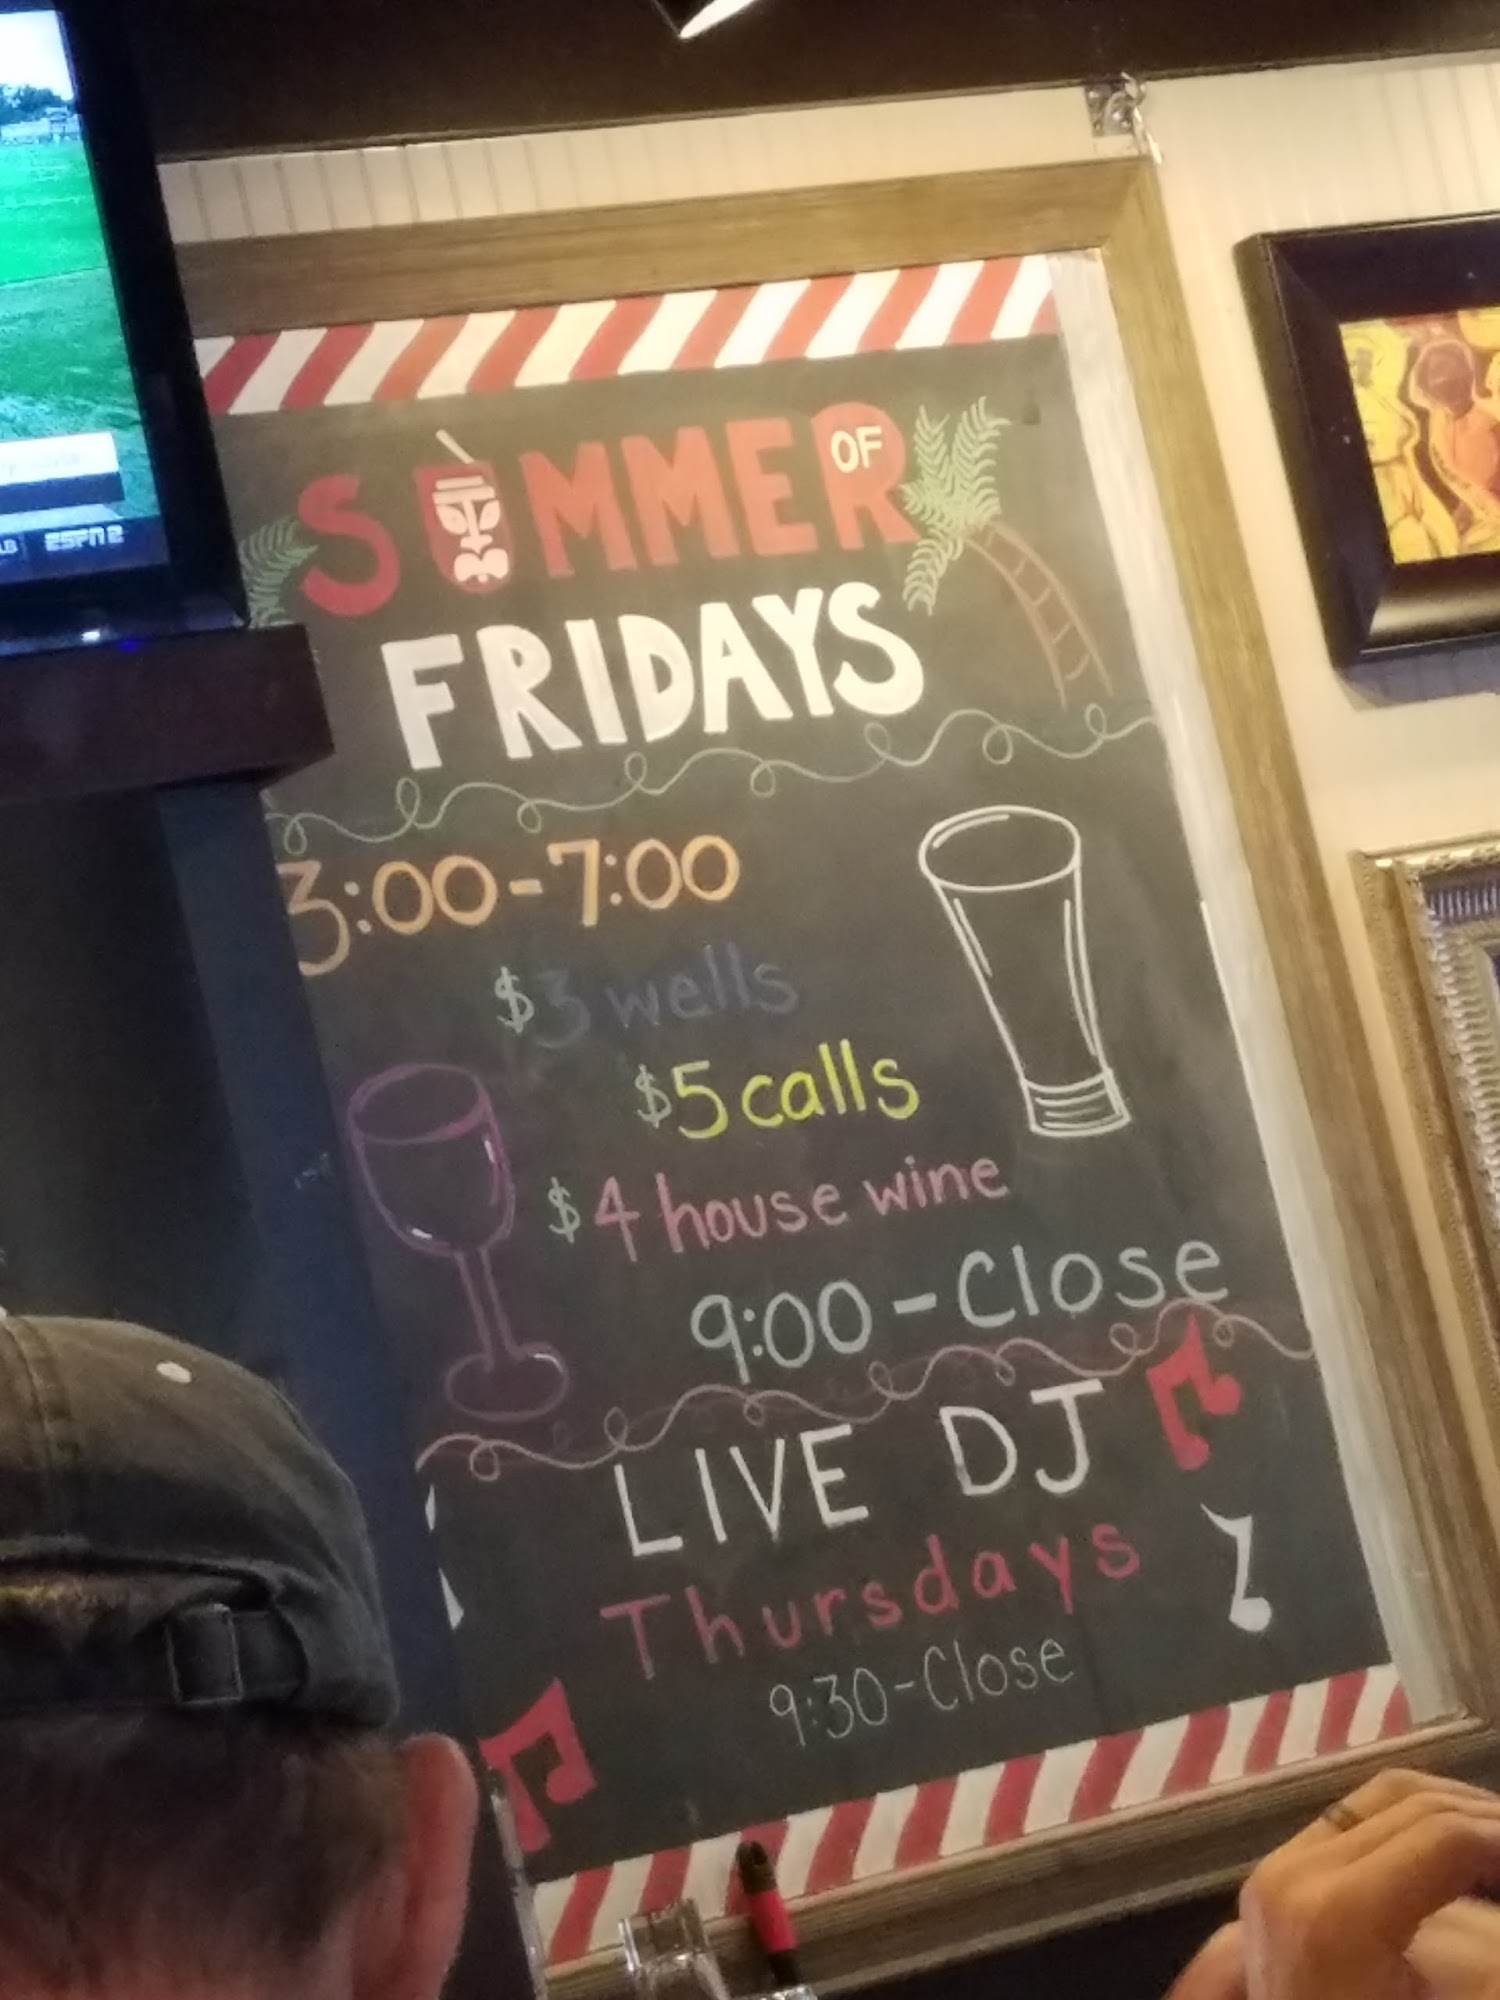 SUMMER OF
FRIDAYS
3:00-7:00
$3 wells
$5 calls
$4 house wine
9:00-Close
LIVE DJ
Thursdays
9:30-Close
ESPN2